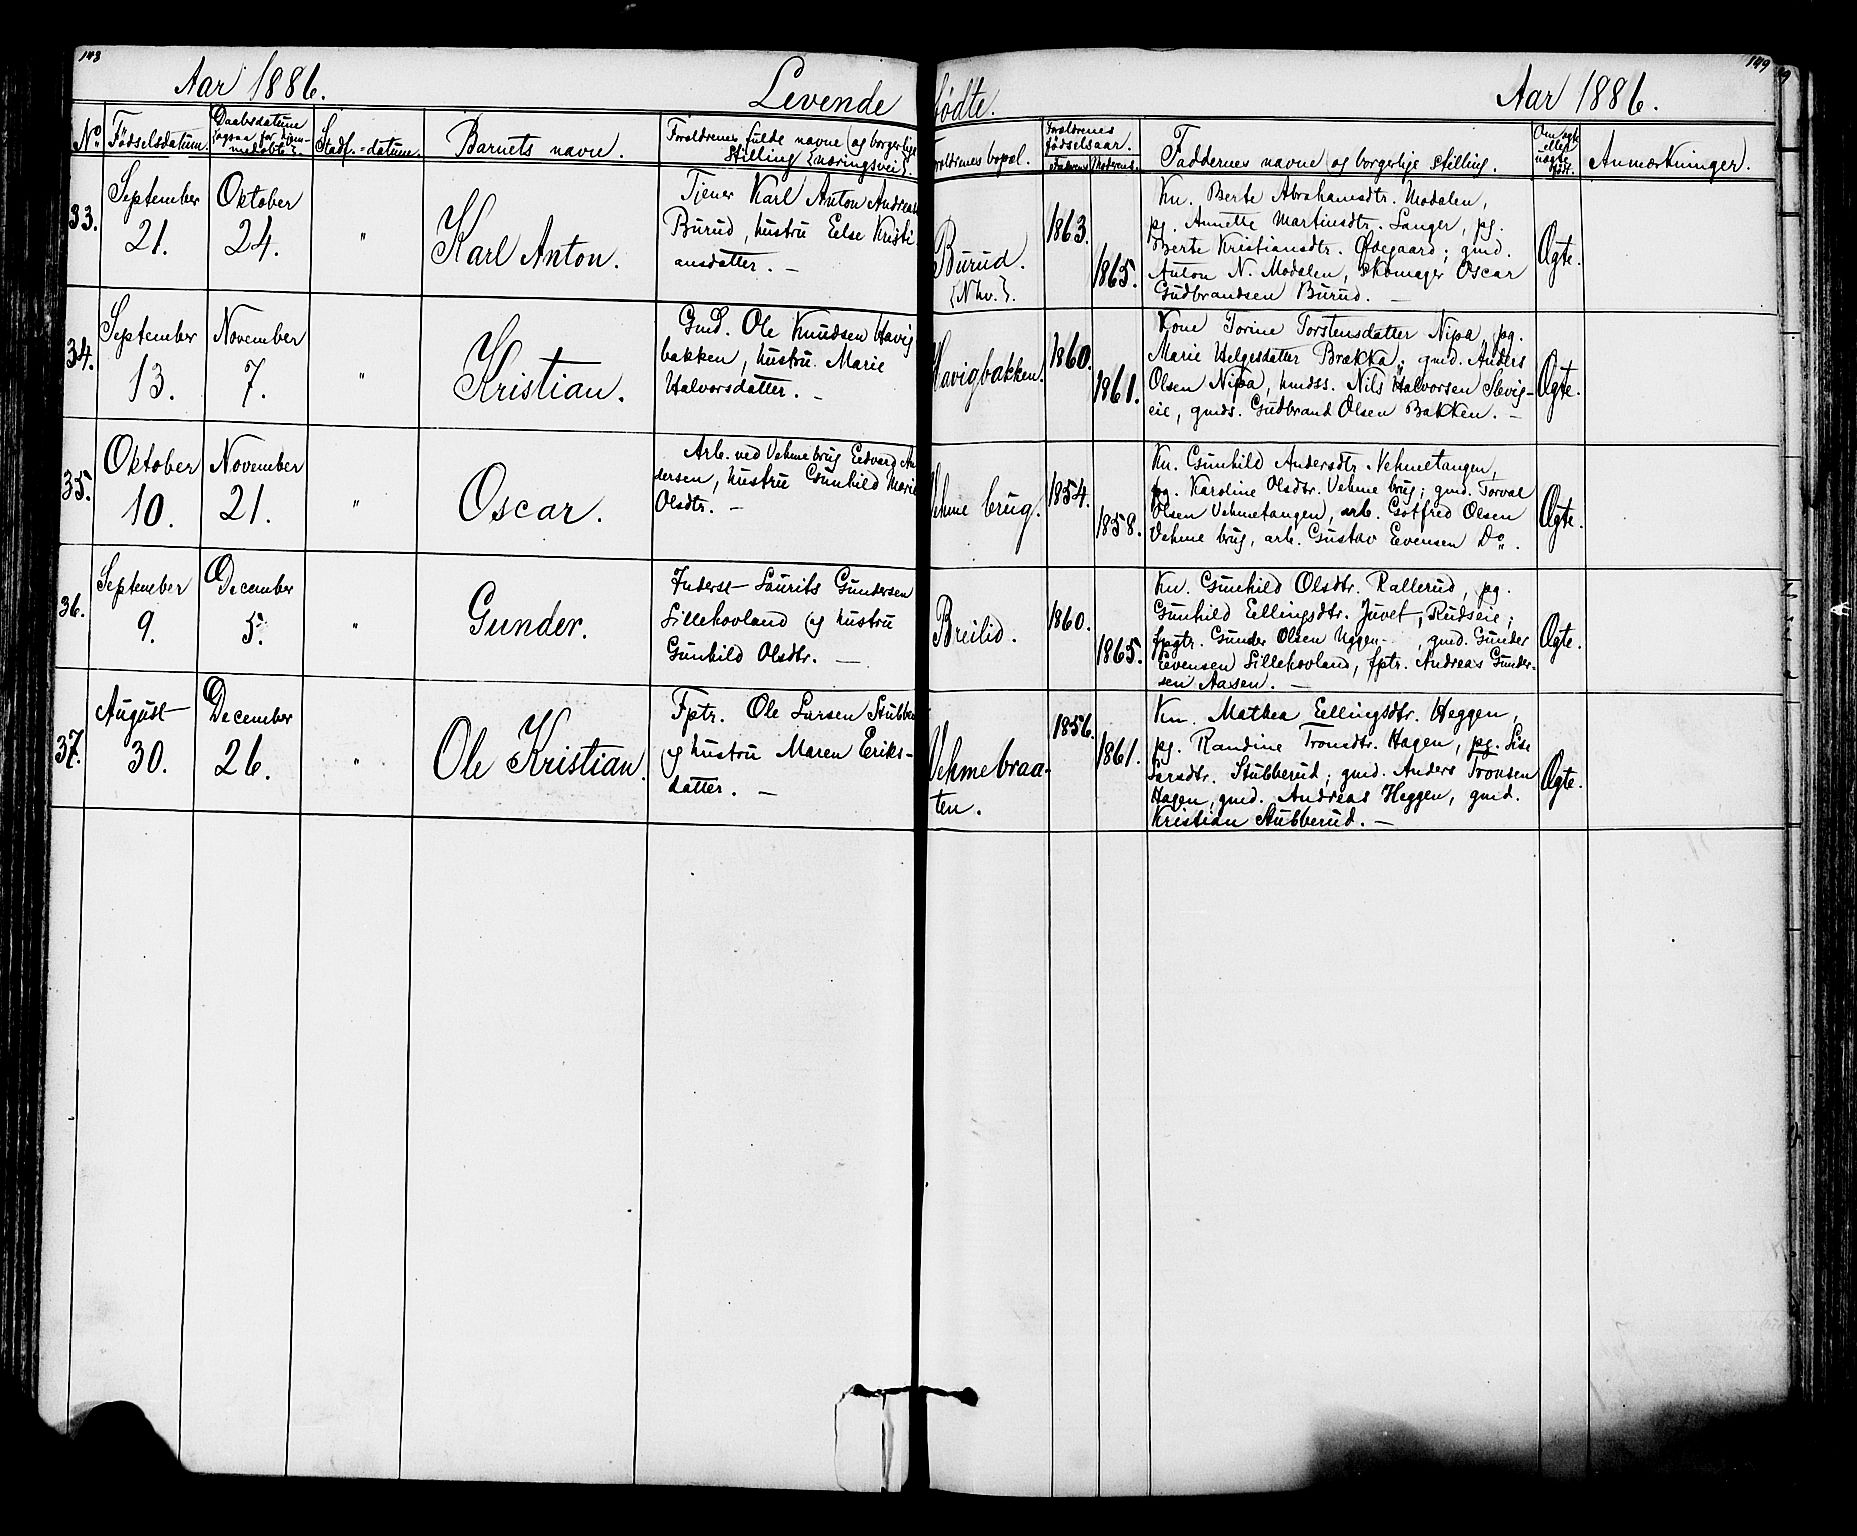 143
149
Aar 1886.
Levende
fødte.
Aar 1886.
No
Fødselsdatum.
Daabsdatum
(ogsaa for hjem-
medøbte).
Stadf.=datum.
Barnets navn.
Forældrenes fulde navne (og borgerlige
stilling {næringsvei}.
Forældrenes bopæl.
Forældrenes
fødselsaar.
Faderens
Moderens.
Faddernes navne og borgerlige stilling.
Om ægte
eller
uægte
født.
Anmærkninger.
33.
September
21.
Oktober
24.
"
Karl Anton.
Tjener Karl Anton Andreas
Burud, hustru Else Kristi
ansdatter. —
Burud.
{Nhv.}.
1863.
1865.
Kn. Berte Abrahamsdtr. Modalen,
pg. Annette Martinsdtr. Langer, pg.
Berte Kristiansdtr. Ødegaard; gmd.
Anton N. Modalen, skomager Oscar
Gudbrandsen Burud. —
Ægte.
34.
September
13.
November
7.
"
Kristian.
Gmd. Ole Knudsen Havig
bakken, hustru Marie
Halvorsdatter. —
Havigbakken.
1860.
1861.
Kone Torine Torstensdatter Nipa, pg.
Marie Helgesdatter Brækka; gmd. Anders
Olsen Nipa, hmdss. Nils Halvorsen Slevig-
eie, gmds. Gudbrand Olsen Bakken. —
Ægte.
35.
Oktober
10.
November
21.
"
Oscar.
Arb. ved Vehme brug Edvard An
dersen, hustru Gunhild Marie
Olsdtr. —
Vehme brug.
1854.
1858.
Kn. Gunhild Andersdtr. Vehmetangen,
pg. Karoline Olsdtr. Vehme brug; gmd. Torval
Olsen Vehmetangen, arb. Gotfred Olsen
Vehme brug, arb. Gustav Evensen Do.
Ægte.
36.
September
9.
December
5.
"
Gunder.
Inderst Laurits Gundersen
Lillehovland og hustru
Gunhild Olsdtr. —
Breilid.
1860.
1865.
Kn. Gunhild Olsdtr. Rallerud, pg.
Gunhild Ellingsdtr. Juvet, Rudseie;
fpgtr. Gunder Olsen Uggen-, gmd. Gunder
Evensen Lillehovland, fptr. Andreas Gunder-
sen Aasen. —
Ægte.
37.
August
30.
December
26.
"
Ole Kristian.
Fptr. Ole Larsen Stubbe
og hustru Maren Eriks-
datter. —
Vehmebraa-
ten.
1856.
1861.
Kn. Mathea Ellingsdtr. Heggen,
pg. Randine Tronsdtr. Hagen, pg. Lise
Larsdtr. Stubberud; gmd. Anders Tronsen
Hagen, gmd. Andreas Heggen, gmd.
Kristian Stubberud. —
Ægte.